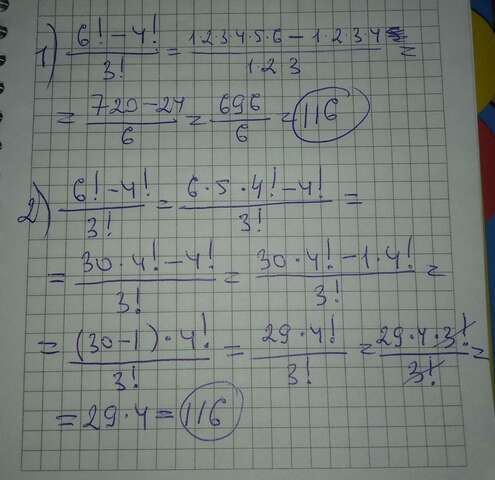 1) (6! - 4!) / 3! = (1·2·3·4·5·6 - 1·2·3·4) / (1·2·3) =
= (720 - 24) / 6 = 696 / 6 = 116
2) (6! - 4!) / 3! = (6·5·4! - 4!) / 3! =
= (30·4! - 4!) / 3! = (30·4! - 1·4!) / 3! =
= ((30 - 1)·4!) / 3! = (29·4!) / 3! = (29·4·3!) / 3! =
= 29·4 = 116